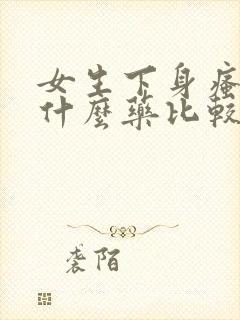 女生下身瘙
什麼藥比較
袭陌